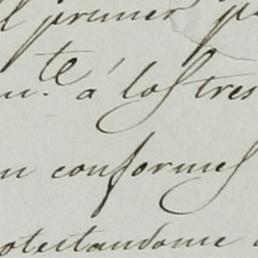 l primer p
n.te á los tres
n conformes
otestandome